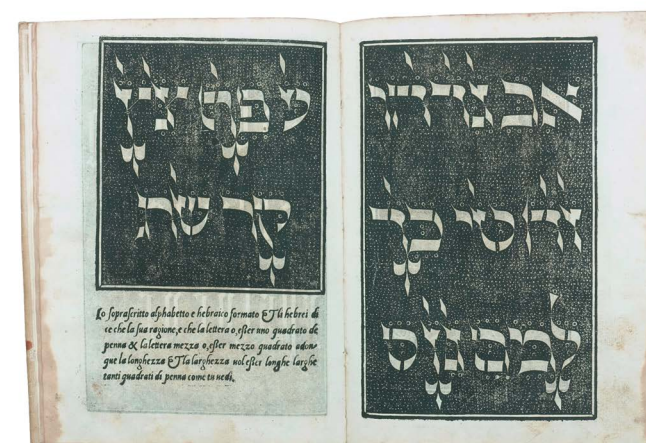 אבגדהו
זחטיכך
למםנןס
עפףצץ
קרשת
Lo soprascritto alphabetto e hebraico formato & li hebrei di
ce che la sua ragione, e che la lettera o, esser uno quadrato de
penna & la letera mezza o, esser mezzo quadrato adon-
que la longhezza & la larghezza uol esser longhe larghe
tanti quadrati di penna come tu uedi.